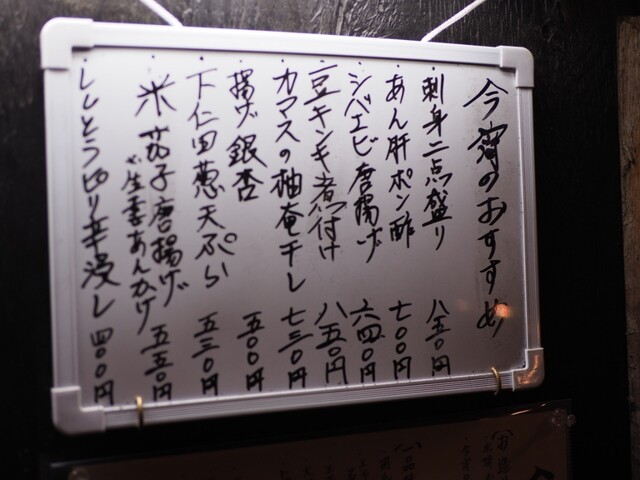 今宵のおすすめ
・刺身二点盛り 八五〇円
・あん肝ポン酢 七〇〇円
・シバエビ唐揚げ 六四〇円
・豆キンキ煮付け 八五〇円
・カマスの柚庵干し 七三〇円
・揚げ銀杏 五〇〇円
・下仁田葱天ぷら 五三〇円
・米茄子唐揚げ
生姜あんかけ 五五〇円
・ししとうピリ辛浸し 四〇〇円
一品